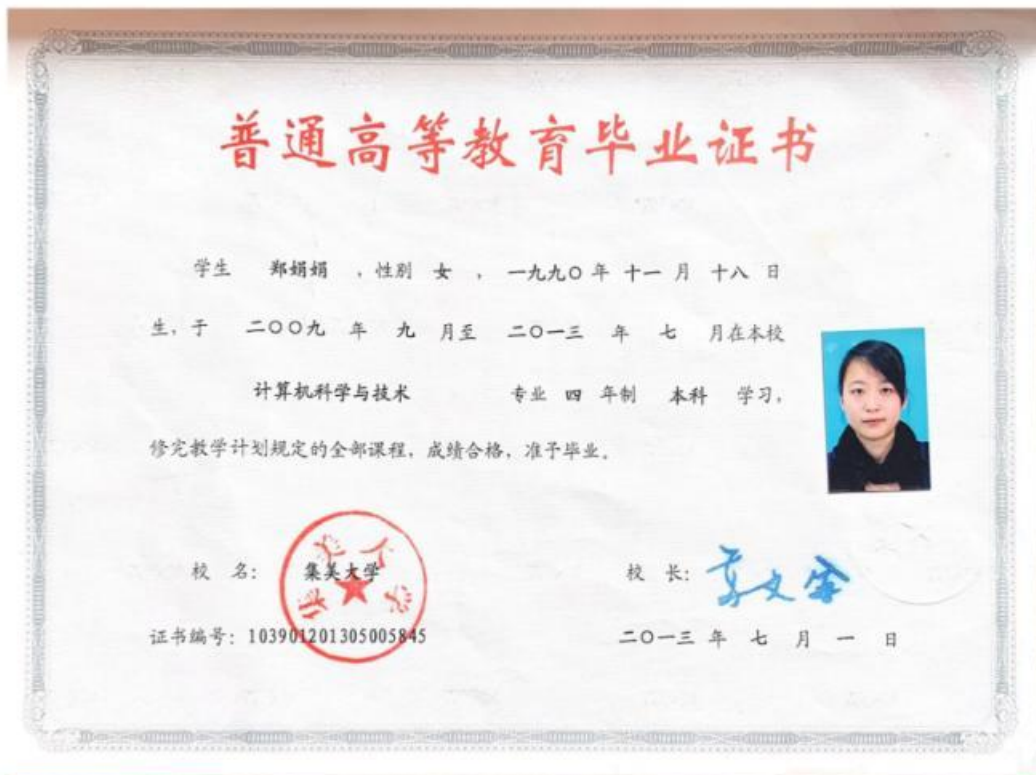 普通高等教育毕业证书
学生 郑娟娟 ，性别 女 ， 一九九〇 年 十一 月 十八 日
生，于 二〇〇九 年 九 月至 二〇一三 年 七 月在本校
计算机科学与技术 专业 四 年制 本科 学习，
修完教学计划规定的全部课程，成绩合格，准予毕业。
校 名： 集美大学 校 长：
证书编号：103901201305005845 二〇一三 年 七 月 一 日